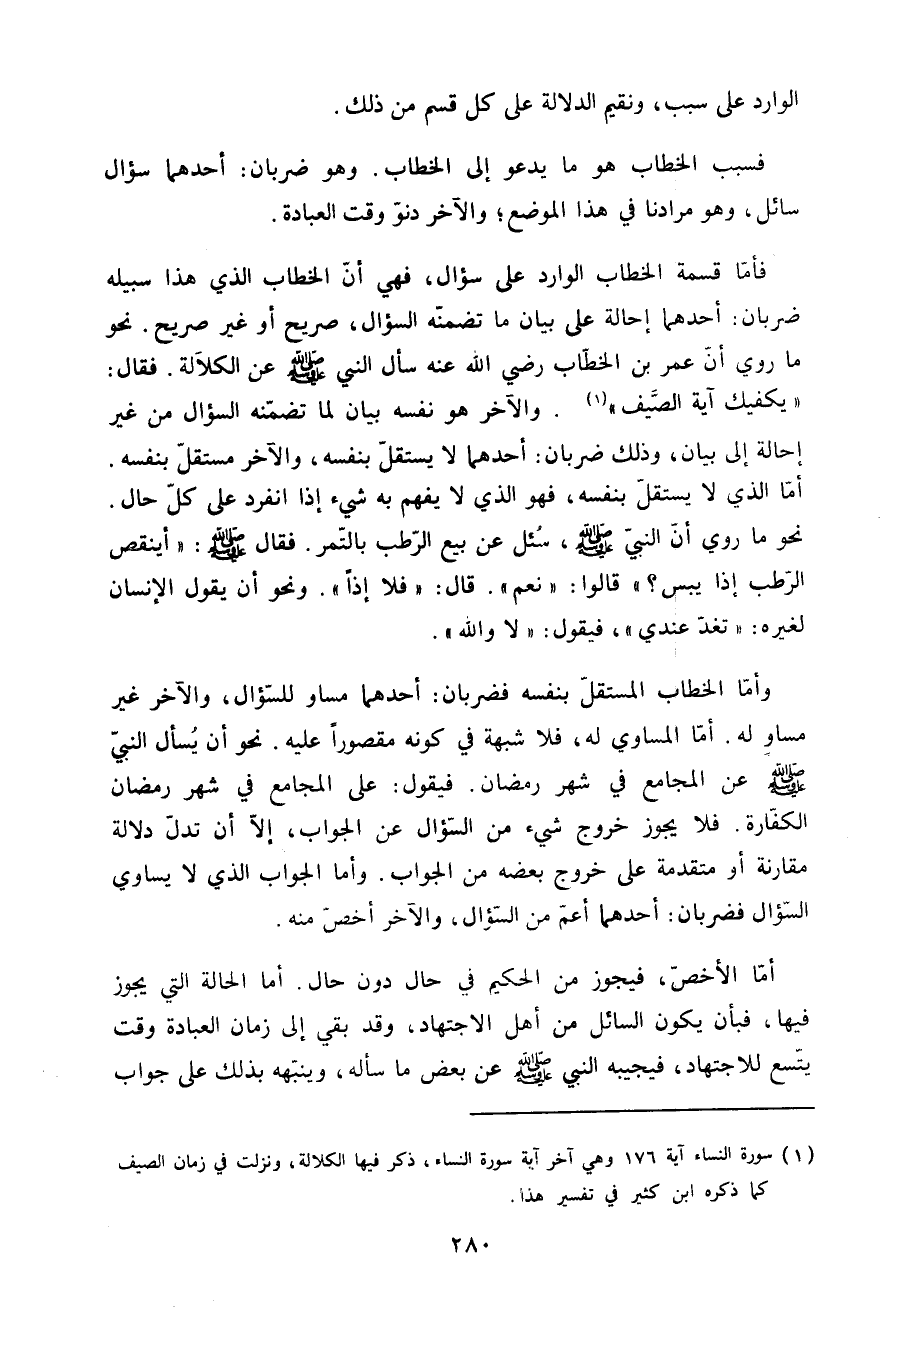 الوارد على سبب، ونقيم الدلالة على كل قسم من ذلك.
فسبب الخطاب هو ما يدعو إلى الخطاب. وهو ضربان: أحدهما سؤال
سائل، وهو مرادنا في هذا الموضع؛ والآخر دنوّ وقت العبادة.
فأمّا قسمة الخطاب الوارد على سؤال، فهي أنّ الخطاب الذي هذا سبيله
ضربان: أحدهما إحالة على بيان ما تضمنّه السؤال، صريح أو غير صريح. نحو
ما روي أنّ عمر بن الخطّاب رضي الله عنه سأل النبي ﷺ عن الكلآلة. فقال:
«يكفيك آية الصَّيف»(١) . والآخر هو نفسه بيان لما تضمّنه السؤال من غير
إحالة إلى بيان، وذلك ضربان: أحدهما لا يستقلّ بنفسه، والآخر مستقلّ بنفسه.
أمّا الذي لا يستقلّ بنفسه، فهو الذي لا يفهم به شيء إذا انفرد على كلّ حال.
نحو ما روي أنّ النبيّ ﷺ، سُئل عن بيع الرّطب بالتّمر. فقال ﷺ: «أينقص
الرّطب إذا يبس؟» قالوا: «نعم». قال: «فلا إذاً». ونحو أن يقول الإنسان
لغيره: «تغدّ عندي»، فيقول: «لا والله».
وأمّا الخطاب المستقلّ بنفسه فضربان: أحدهما مساو للسّؤال، والآخر غير
مساوٍ له. أمّا المساوي له، فلا شبهة في كونه مقصوراً عليه. نحو أن يُسأل النبيّ
ﷺ عن المجامع في شهر رمضان. فيقول: على المجامع في شهر رمضان
الكفّارة. فلا يجوز خروج شيء من السّؤال عن الجواب، إلاّ أن تدلّ دلالة
مقارنة أو متقدمة على خروج بعضه من الجواب. وأما الجواب الذي لا يساوي
السّؤال فضربان: أحدهما أعمّ من السّؤال، والآخر أخصّ منه.
أمّا الأخصّ، فيجوز من الحكيم في حال دون حال. أما الحالة التي يجوز
فيها، فبأن يكون السائل من أهل الاجتهاد، وقد بقي إلى زمان العبادة وقت
يتّسع للاجتهاد، فيجيبه النبي ﷺ عن بعض ما سأله، وينبّهه بذلك على جواب
(١) سورة النساء آية ١٧٦ وهي آخر آية سورة النساء، ذكر فيها الكلالة، ونزلت في زمان الصيف
كما ذكره ابن كثير في تفسير هذا.
٢٨٠